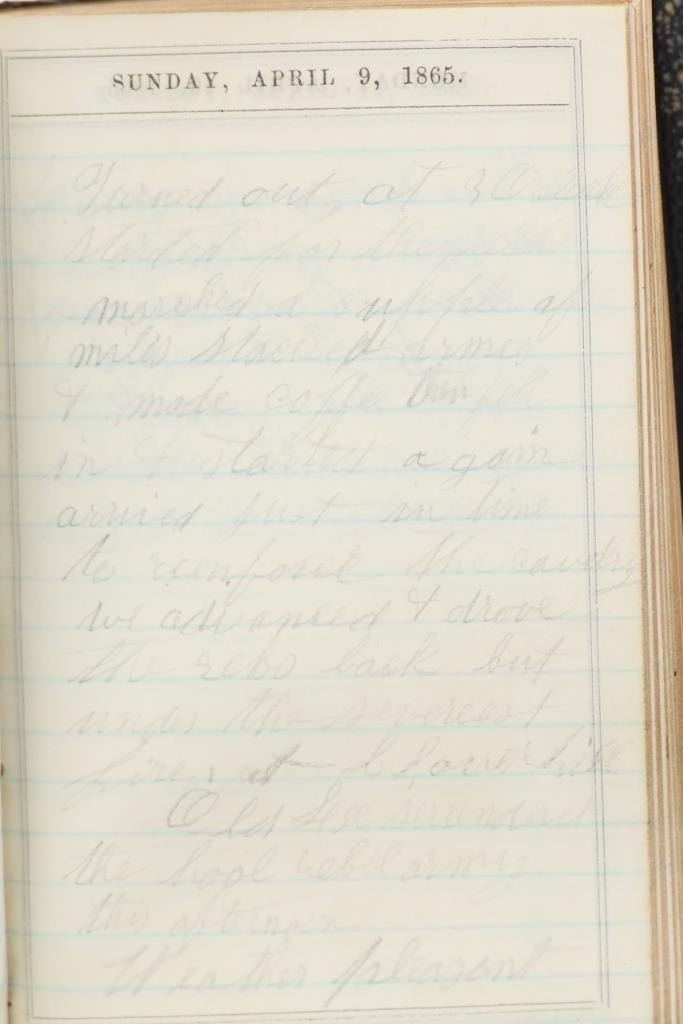 SUNDAY, APRIL 9, 1865.
Turned out at 3 Oclock
started for the
marched a cupple of
miles stacked armes
& made coffee then fell
in & started again
arrived just in time
to reenforce the cavelry
we advanced & drove
the rebs back but
under the severest
fire, at
Old Lee serrendard
the hool rebel army
this afternoon
Weather pleasant